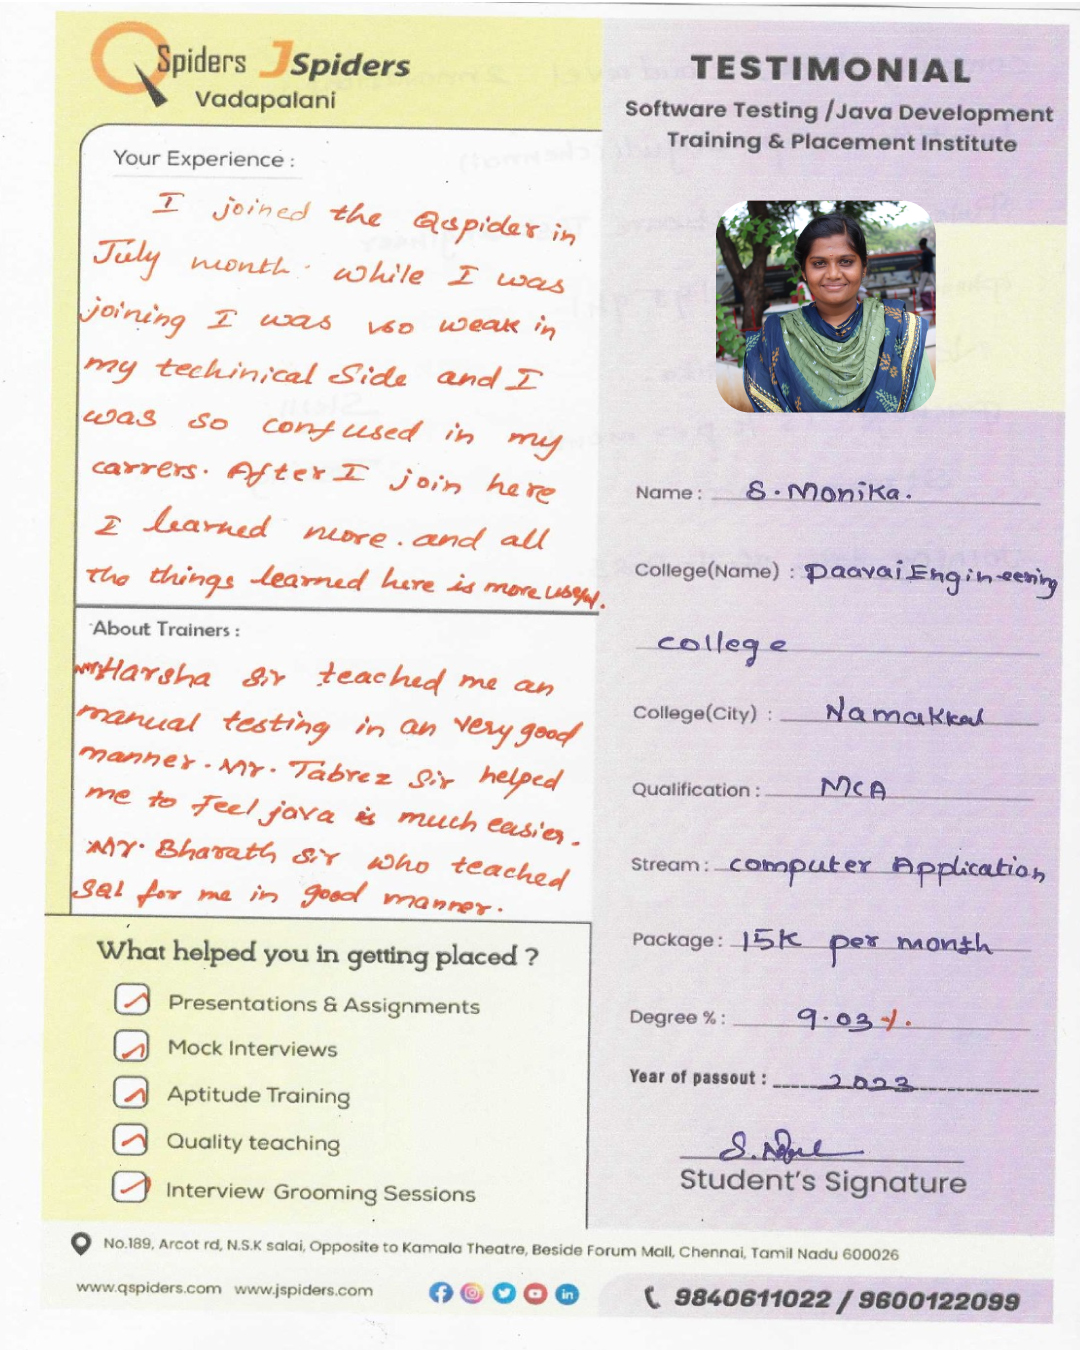 QSpiders JSpiders
Vadapalani
TESTIMONIAL
Software Testing /Java Development
Training & Placement Institute
Your Experience :
I joined the Qspider in
July month. while I was
joining I was so weak in
my techinical Side and I
was so confused in my
carrers. After I join here
I learned more. and all
the things learned here is more useful.
About Trainers :
Mr Harsha Sir teached me an
manual testing in an very good
manner. Mr. Tabrez Sir helped
me to feel java is much easier.
Mr. Bharath Sir who teached
Sql for me in good manner.
What helped you in getting placed ?
Presentations & Assignments
Mock Interviews
Aptitude Training
Quality teaching
Interview Grooming Sessions
Name : S. Monika.
College(Name) : Paavai Engineering
college
College(City) : Namakkal
Qualification : MCA
Stream : computer Application
Package : 15K per month
Degree % : 9.03 %.
Year of passout : 2023
Student's Signature
No.189, Arcot rd, N.S.K salai, Opposite to Kamala Theatre, Beside Forum Mall, Chennai, Tamil Nadu 600026
www.qspiders.com www.jspiders.com
9840611022 / 9600122099